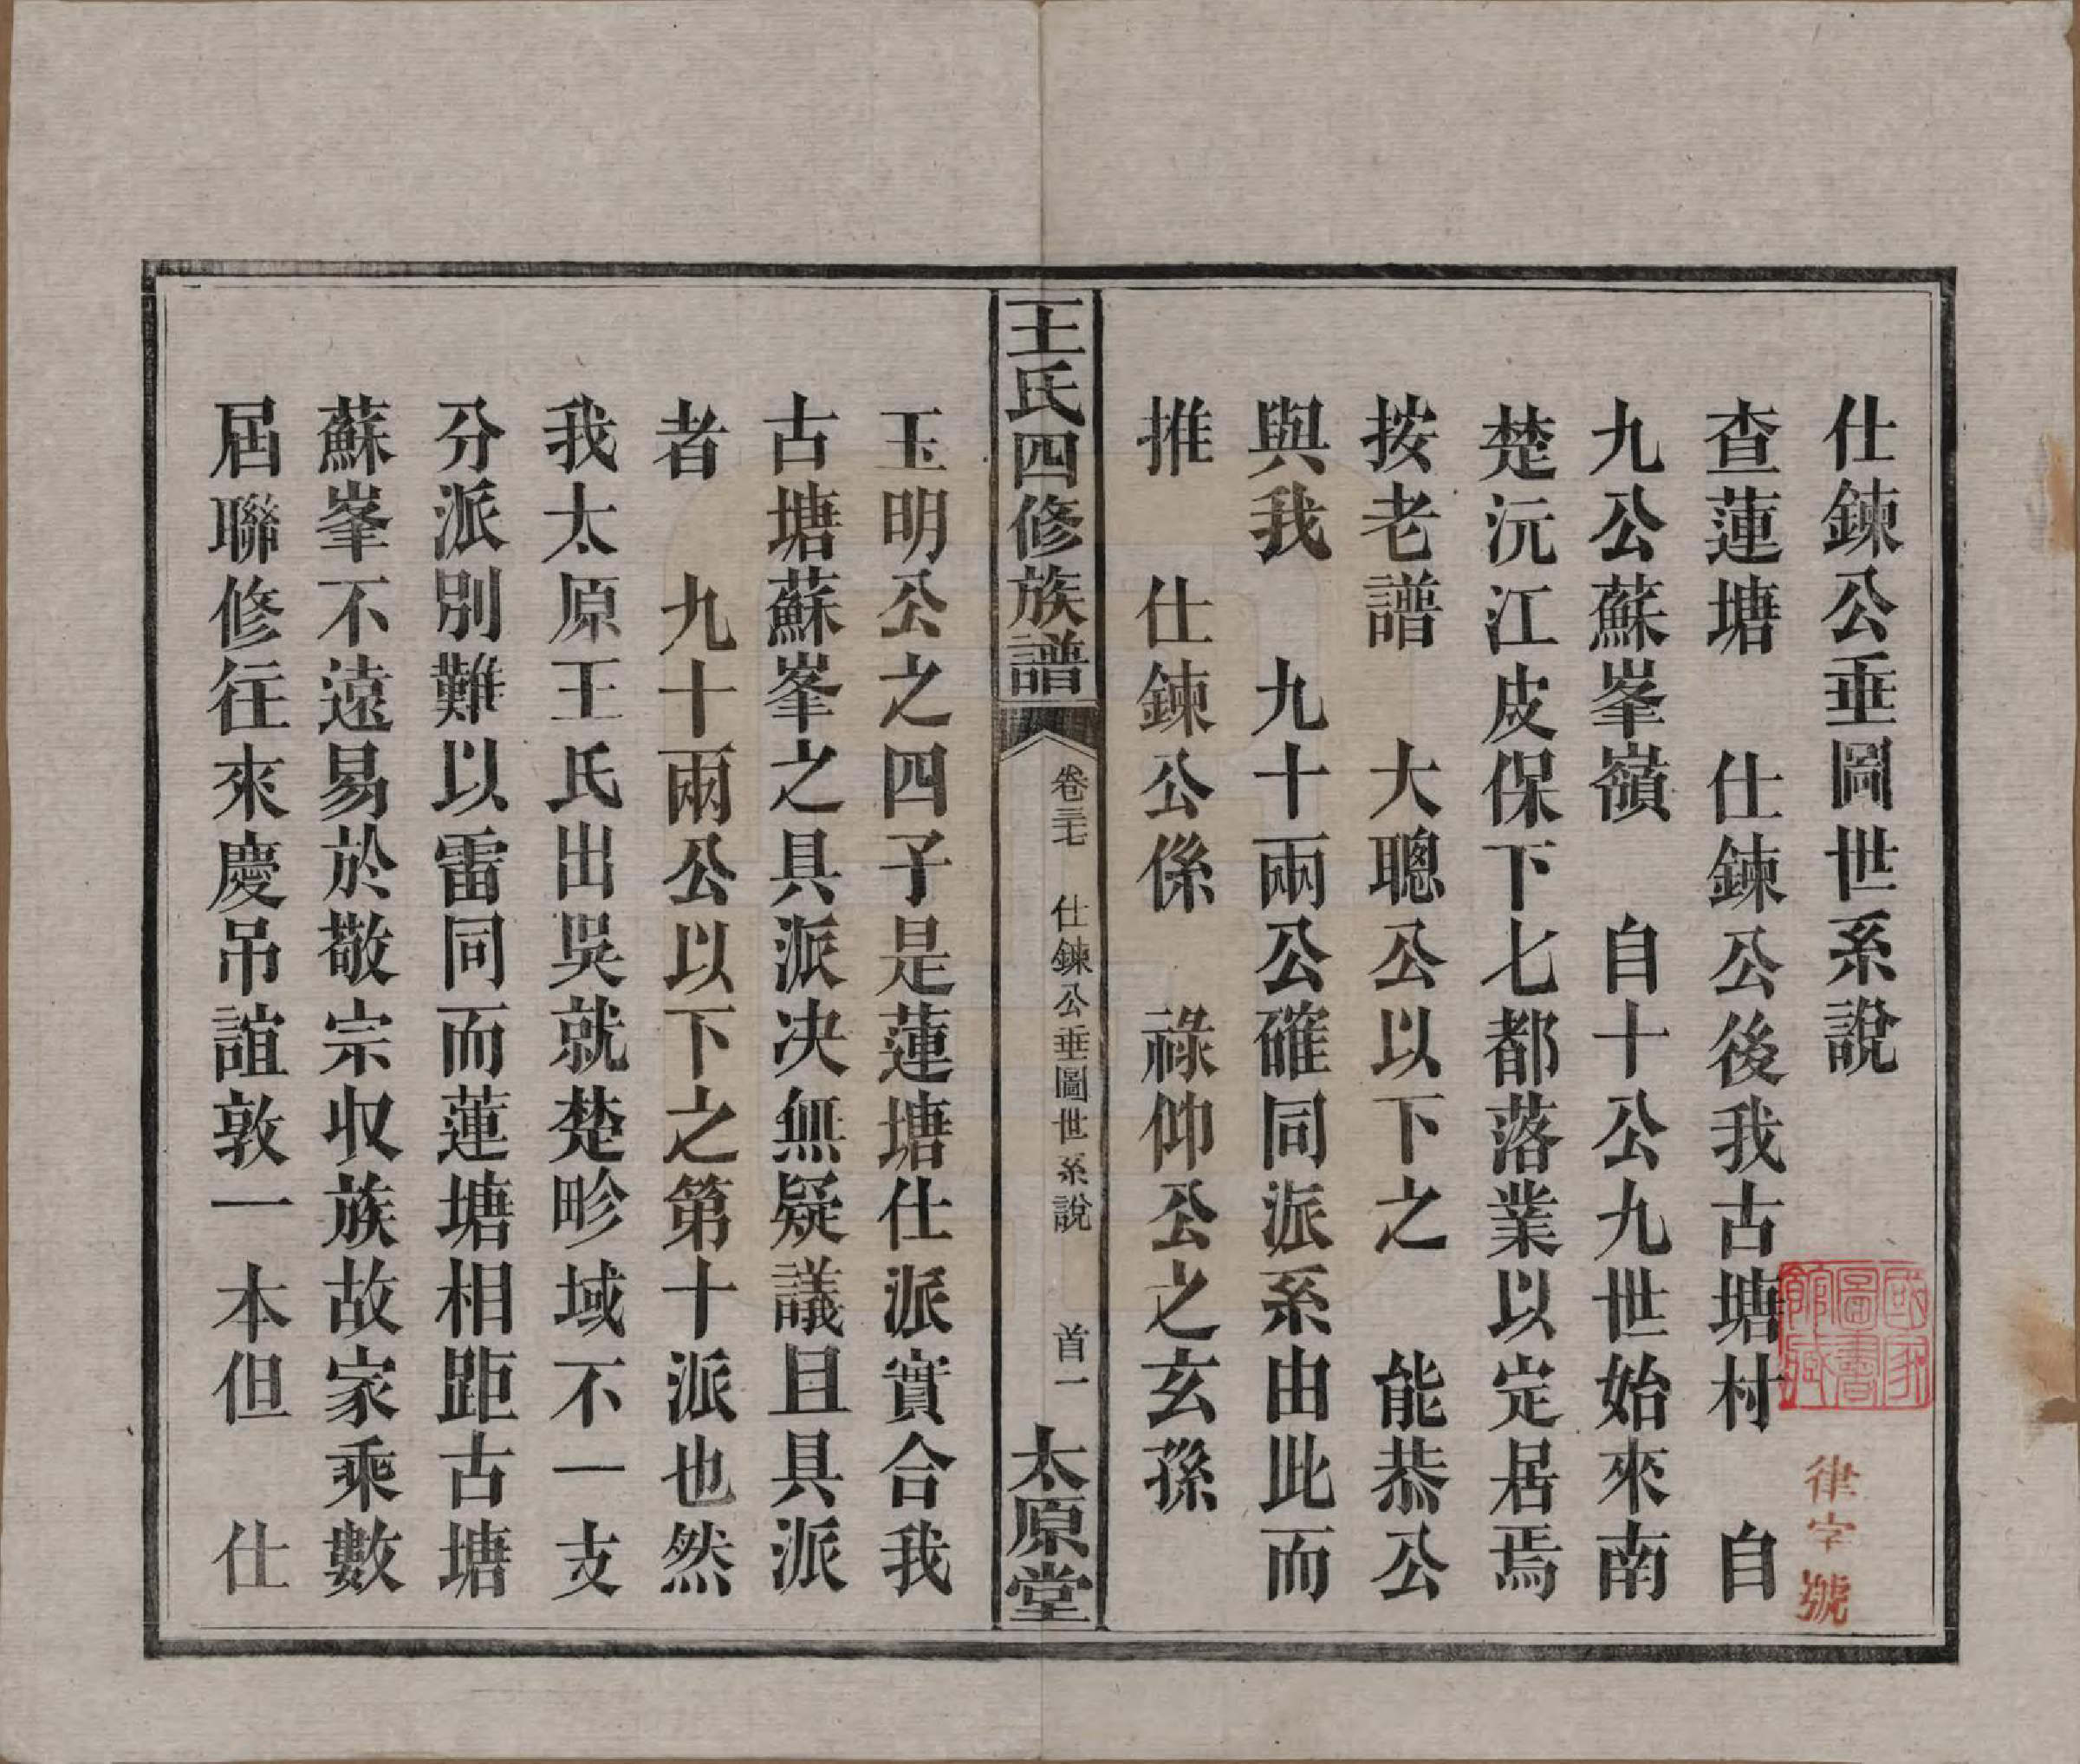 仕鍊公垂圖世系說
查蓮塘　仕鍊公後我古塘村　自
九公蘇峯嶺　自十公九世始來南
楚沅江皮保下七都落業以定居焉
按老譜　大聰公以下之　能恭公
與我　九十兩公確同派系由此而
推　仕鍊公係　祿仰公之玄孫
王氏四修族譜
卷三七　仕鍊公垂圖世系說　首一
太原堂
玉明公之四子是蓮塘仕派實合我
古塘蘇峯之具派決無疑議且具派
者　九十兩公以下之第十派也然
我太原王氏出吳就楚畛域不一支
分派別難以雷同而蓮塘相距古塘
蘇峯不遠易於敬宗収族故家乘數
屆聯修往來慶吊誼敦一本但　仕
國家圖書館藏
律字號